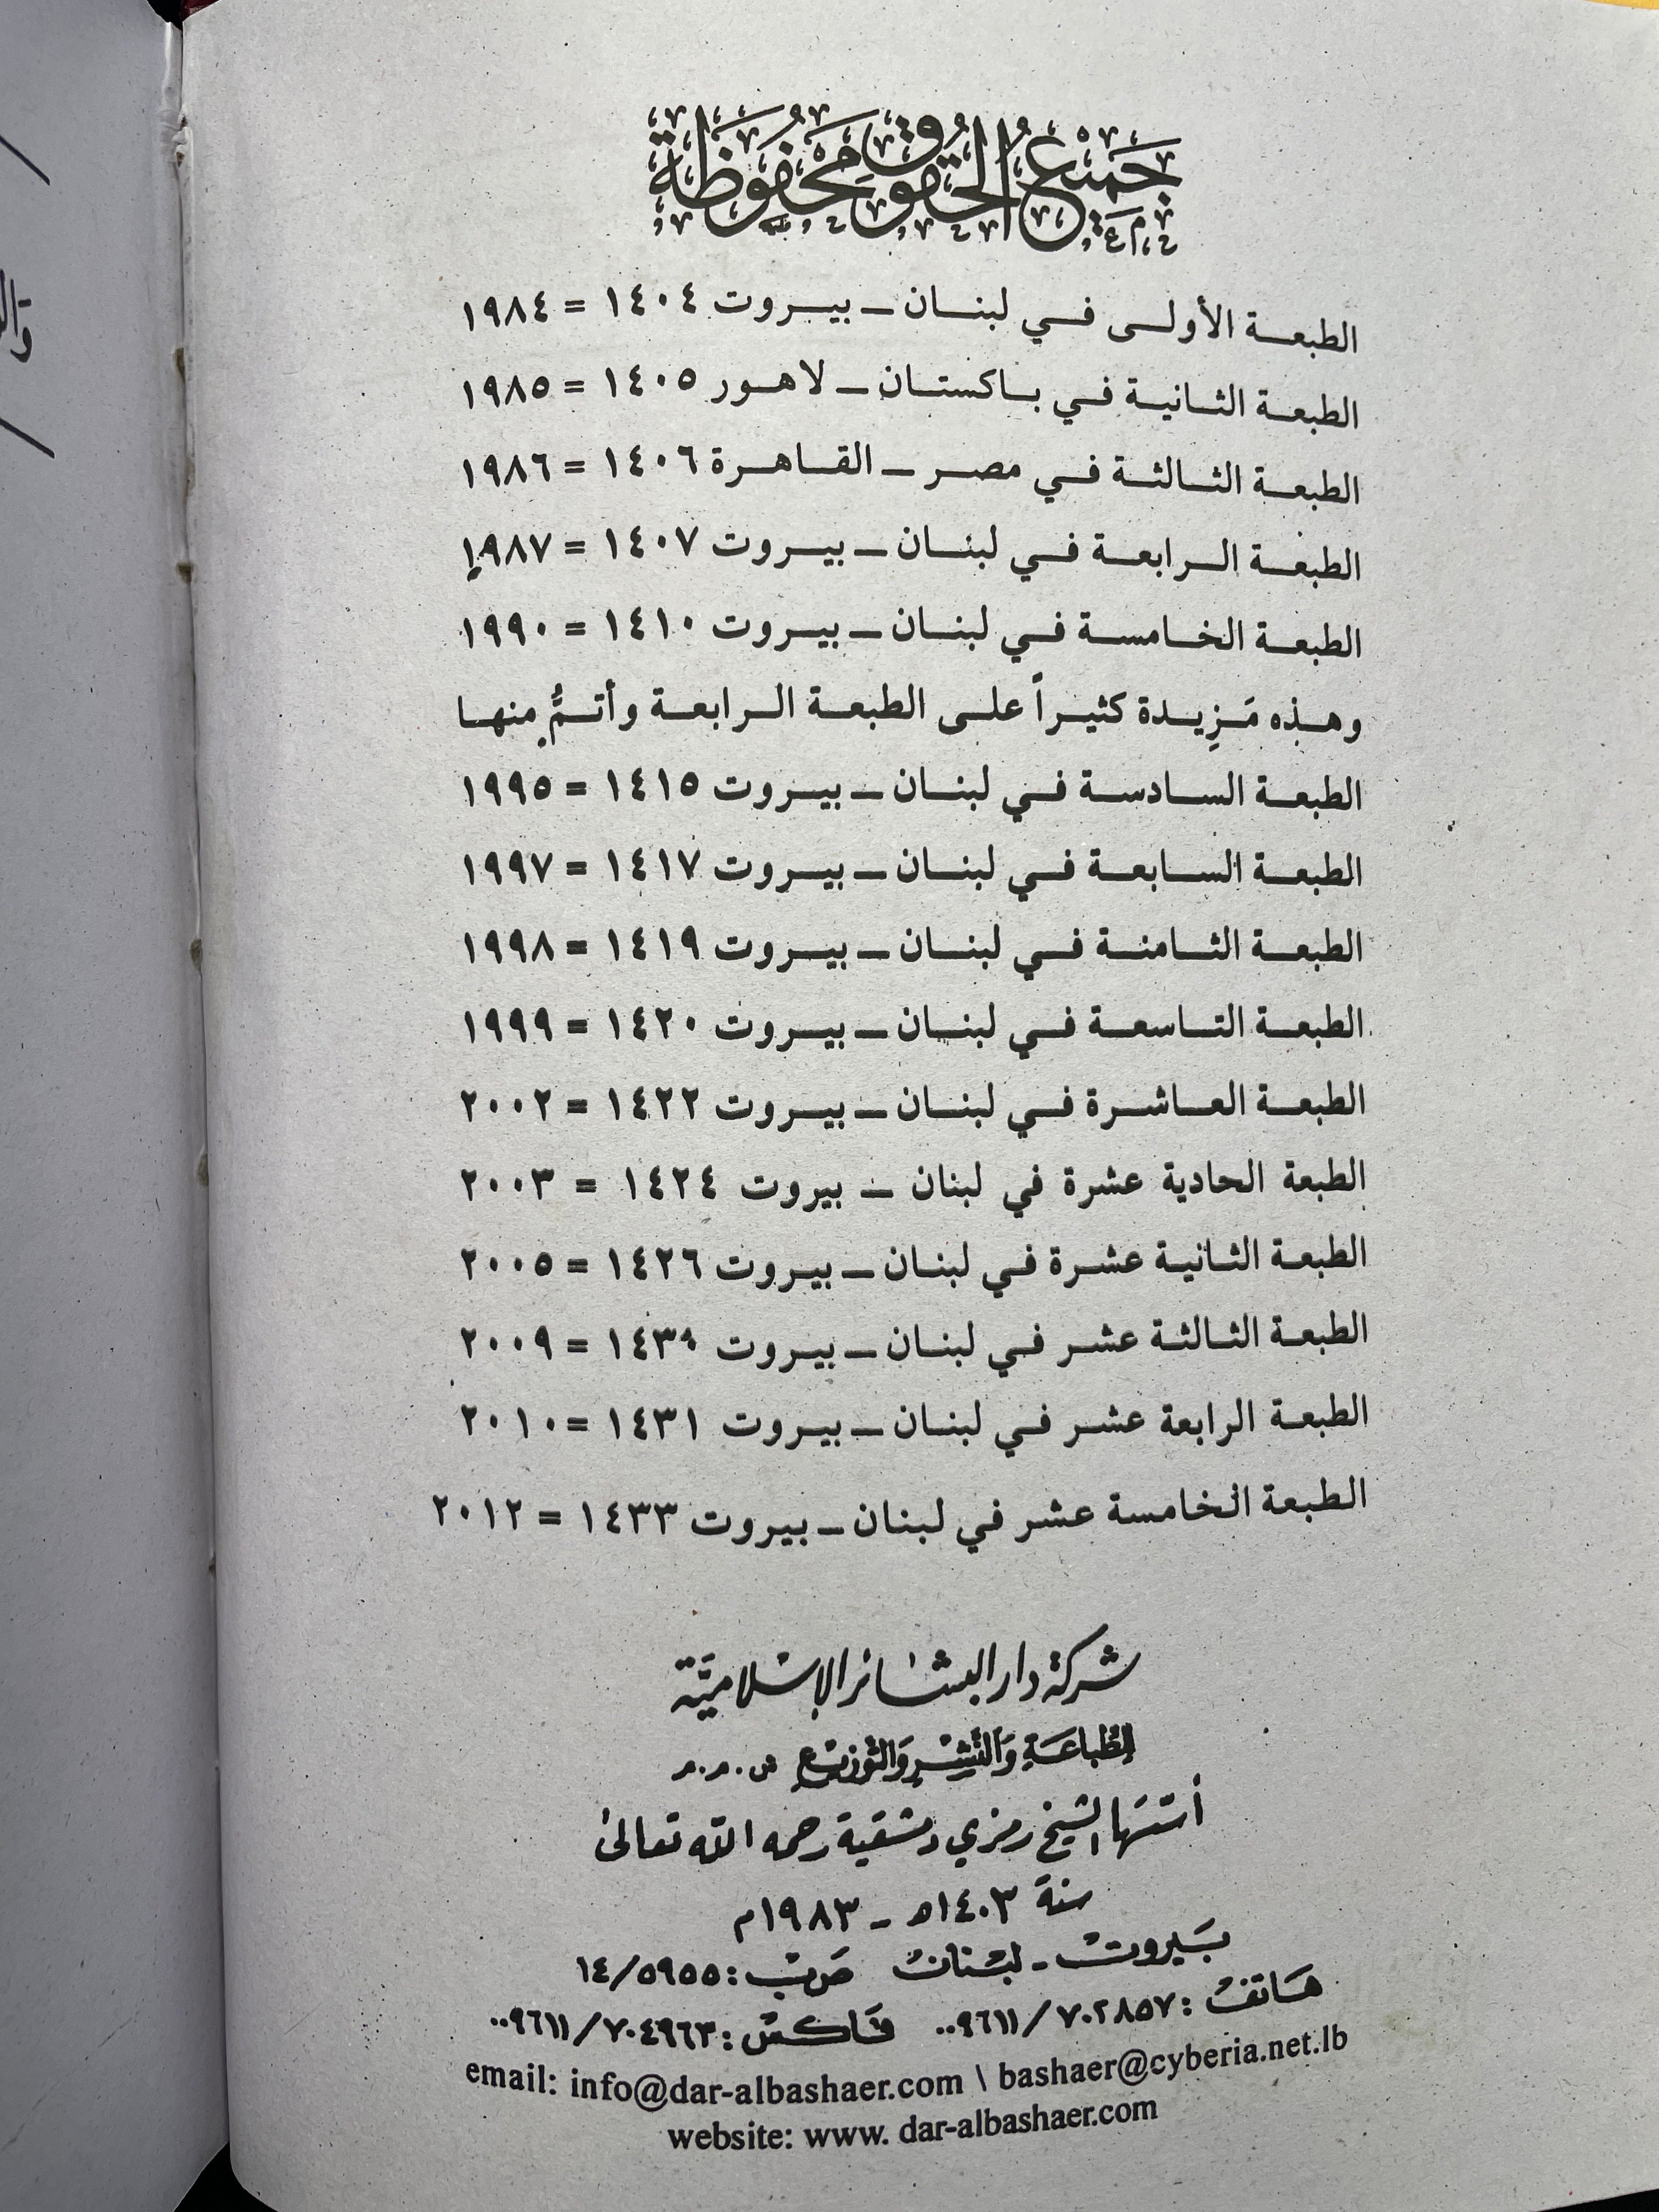 جَمِيْعُ الحُقُوقِ مَحْفُوظَة
الطبعة الأولى في لبنان ـ بيروت ١٤٠٤ = ١٩٨٤
الطبعة الثانية في باكستان ـ لاهور ١٤٠٥ = ١٩٨٥
الطبعة الثالثة في مصر ـ القاهرة ١٤٠٦ = ١٩٨٦
الطبعة الرابعة في لبنان ـ بيروت ١٤٠٧ = ١٩٨٧
الطبعة الخامسة في لبنان ـ بيروت ١٤١٠ = ١٩٩٠
وهذه مَزِيدة كثيراً على الطبعة الرابعة وأتمُّ منها
الطبعة السادسة في لبنان ـ بيروت ١٤١٥ = ١٩٩٥
الطبعة السابعة في لبنان ـ بيروت ١٤١٧ = ١٩٩٧
الطبعة الثامنة في لبنان ـ بيروت ١٤١٩ = ١٩٩٨
الطبعة التاسعة في لبنان ـ بيروت ١٤٢٠ = ١٩٩٩
الطبعة العاشرة في لبنان ـ بيروت ١٤٢٢ = ٢٠٠٢
الطبعة الحادية عشرة في لبنان ـ بيروت ١٤٢٤ = ٢٠٠٣
الطبعة الثانية عشرة في لبنان ـ بيروت ١٤٢٦ = ٢٠٠٥
الطبعة الثالثة عشر في لبنان ـ بيروت = ٢٠٠٩
الطبعة الرابعة عشر في لبنان ـ بيروت ١٤٣١ = ٢٠١٠
الطبعة الخامسة عشر في لبنان ـ بيروت ١٤٣٣ = ٢٠١٢
شركة دار البشائر الإسلاميَّة
للطِّبَاعَةِ وَالنَّشْرِ وَالتَّوْزِيعِ ش.م.م
أسّسَها الشيخ رمزي دمشقية رحمه الله تعالى
سنة ١٤٠٣هـ ـ ١٩٨٣م
بَيروت ـ لبْنان صَ.ب: ١٤/٥٩٥٥
هَاتف: ٠٠٩٦١١/٧٠٢٨٥٧ فَاكس: ٠٠٩٦١١/٧٠٤٩٦٣
email: info@dar-albashaer.com \ bashaer@cyberia.net.lb
website: www. dar-albashaer.com